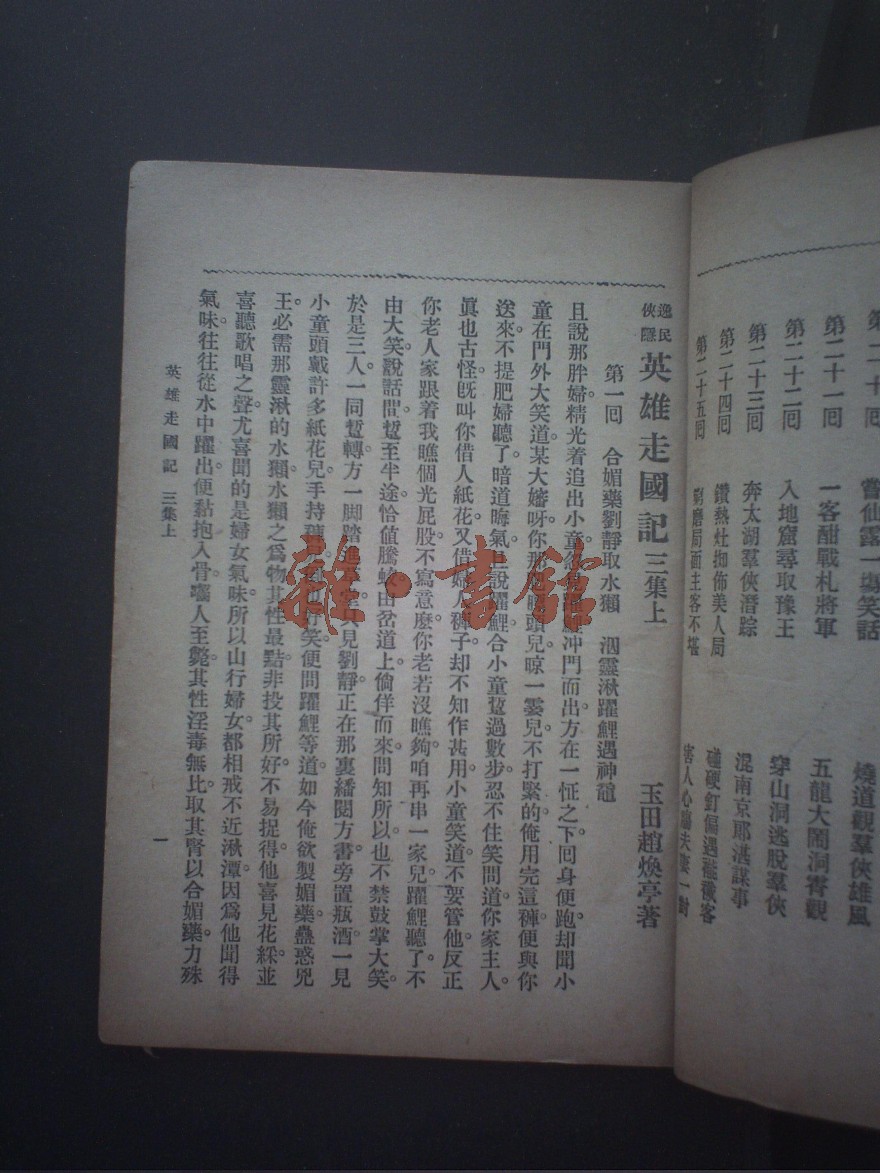 第二十回
嘗仙露一塲笑話
燒道觀羣俠雄風
第二十一回
一客酣戰札將軍
五龍大鬧洞霄觀
第二十二回
入地窟尋取豫王
穿山洞逃脫羣俠
第二十三回
奔太湖羣俠潛踪
混南京耶湛謀事
第二十四回
鑽熱灶拗佈美人局
碰硬釘偏遇
客
第二十五回
磨局面主客不堪
害人心
夫妻一對
逸民俠隱
英雄走國記 三集上
玉田趙煥亭著
第一回 合媚藥劉靜取水獺 泅靈湫躍鯉遇神黿
且說那胖婦精光着追出小童
躍鯉冲門而出方在一怔之下回身便跑却聞小
童在門外大笑道某大嬸呀你那
頭兒晾一霎兒不打緊的俺用完這褲便與你
送來不提肥婦聽了暗道晦氣且說躍鯉合小童踅過數步忍不住笑問道你家主人
眞也古怪旣叫你借人紙花又借婦人褲子却不知作甚用小童笑道不要管他反正
你老人家跟着我瞧個光屁股不寃意麽你老若沒瞧夠咱再串一家兒躍鯉聽了不
由大笑說話間踅至半途恰值騰蛟由岔道上倘佯而來問知所以也不禁鼓掌大笑
於是三人一同踅轉方一脚踏進
只見劉靜正在那裏繙閱方書旁置瓶酒一見
小童頭戴許多紙花兒手持
好笑便問躍鯉等道如今俺欲製媚藥蠱惑兇
王必需那靈湫的水獺水獺之爲物其性最黠非投其所好不易捉得他喜見花綵並
喜聽歌唱之聲尤喜聞的是婦女氣味所以山行婦女都相戒不近湫潭因爲他聞得
氣味往往從水中躍出便黏抱入骨囓人至斃其性淫毒無比取其腎以合媚藥力殊
英雄走國記 三集上
一
雜·書館